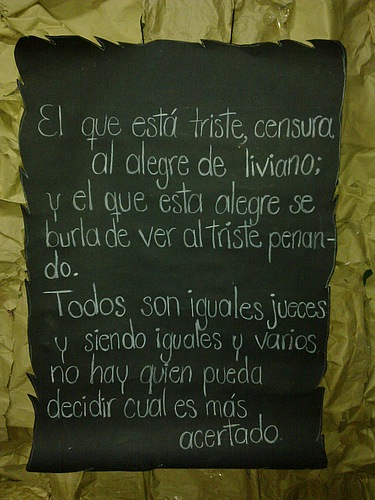 El que está triste, censura
al alegre de liviano;
y el que esta alegre se
burla de ver al triste penan-
do.
Todos son iguales jueces
y siendo iguales y varios
no hay quien pueda
decidir cual es más
acertado.